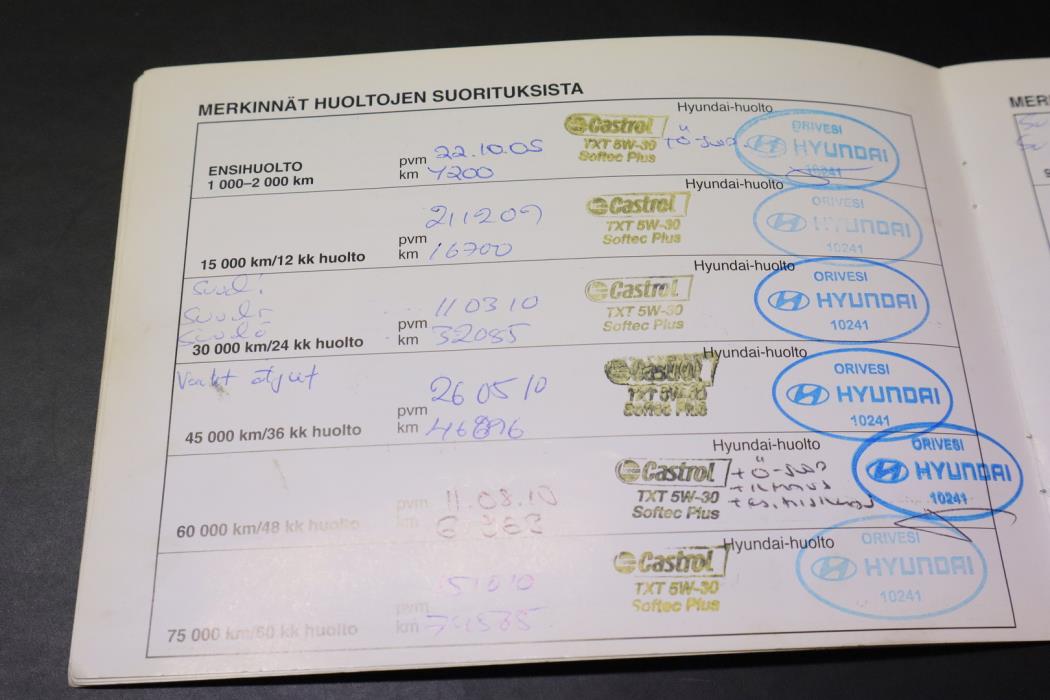 MERKINNÄT HUOLTOJEN SUORITUKSISTA
Hyundai-huolto
ENSIHUOLTO
1 000–2 000 km
pvm 22.10.05
km 4200
Castrol
TXT 5W-30
Softec Plus
ORIVESI
HYUNDAI
10241
Hyundai-huolto
15 000 km/12 kk huolto
pvm 211209
km 16700
Castrol
TXT 5W-30
Softec Plus
ORIVESI
HYUNDAI
10241
Hyundai-huolto
30 000 km/24 kk huolto
pvm 110310
km 32085
Castrol
TXT 5W-30
Softec Plus
ORIVESI
HYUNDAI
10241
Hyundai-huolto
45 000 km/36 kk huolto
pvm 26 05 10
km 46896
Castrol
TXT 5W-30
Softec Plus
ORIVESI
HYUNDAI
10241
Hyundai-huolto
60 000 km/48 kk huolto
pvm 11.08.10
km
Castrol
TXT 5W-30
Softec Plus
ORIVESI
HYUNDAI
10241
Hyundai-huolto
75 000 km/60 kk huolto
pvm
km
Castrol
TXT 5W-30
Softec Plus
ORIVESI
HYUNDAI
10241
MER